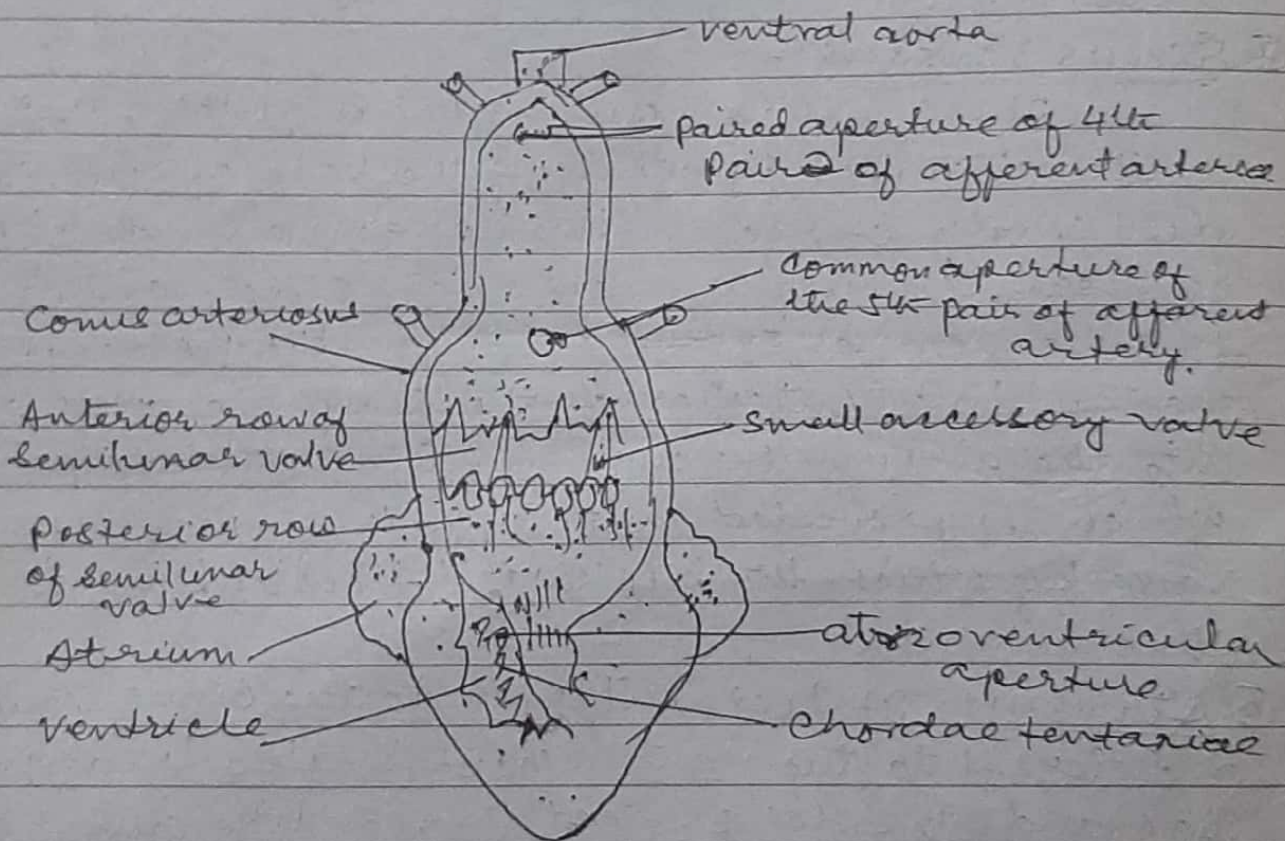 ventral aorta
paired aperture of 4th
pair of afferent arteries
Common aperture of
the 5th pair of afferent
artery.
Conus arteriosus
Anterior row of
semilunar valve
small accessory valve
posterior row
of semilunar
valve
Atrium
atrioventricular
aperture
ventricle
Chordae tentariae